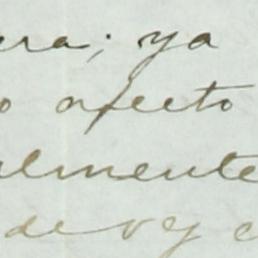 era; ya
o afecto
almente
de v y c